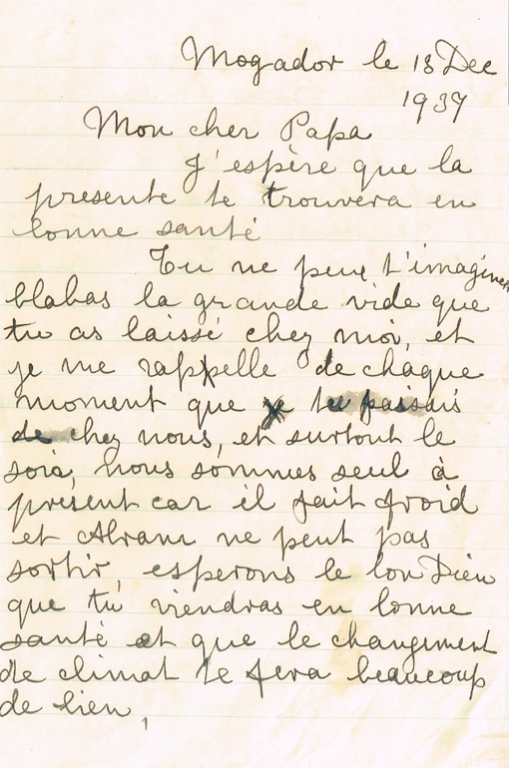 Mogador le 13 Dec
1937
Mon cher Papa
J'espère que la
presente te trouvera en
bonne santé
Tu ne peux t'imaginer
blabas la grande vide que
tu as laissé chez moi, et
je me rappelle de chaque
moment que tu passais
de chez nous, et surtout le
soir, nous sommes seul à
present car il fait froid
et Abram ne peut pas
sortir, esperons le bon Dieu
que tu viendras en bonne
santé et que le changement
de climat te fera beaucoup
de bien,